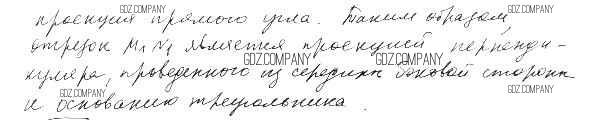 GDZ.COMPANY GDZ.COMPANY
проекция прямого угла. Таким образом,
отрезок M₁N₁ является проекцией перпенди-
GDZ.COMPANY GDZ.COMPANY
куляра, проведенного из середины боковой стороны
GDZ.COMPANY GDZ.COMPANY
к основанию треугольника.